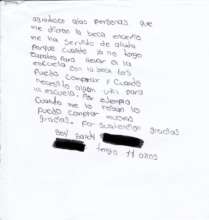 agradesco alas personas que
me dieron la beca escuela
me ha servido de ayuda
porque cuando ya no tengo
zapatos para llevar a la
escuela con la beca los
Puedo comprar y Cuando
necesito algun util para
la escuela. Por ejemplo
Cuando me la roban los
puedo comprar muchas
gracias. Por su atencion gracias
Soy
tengo 11 años